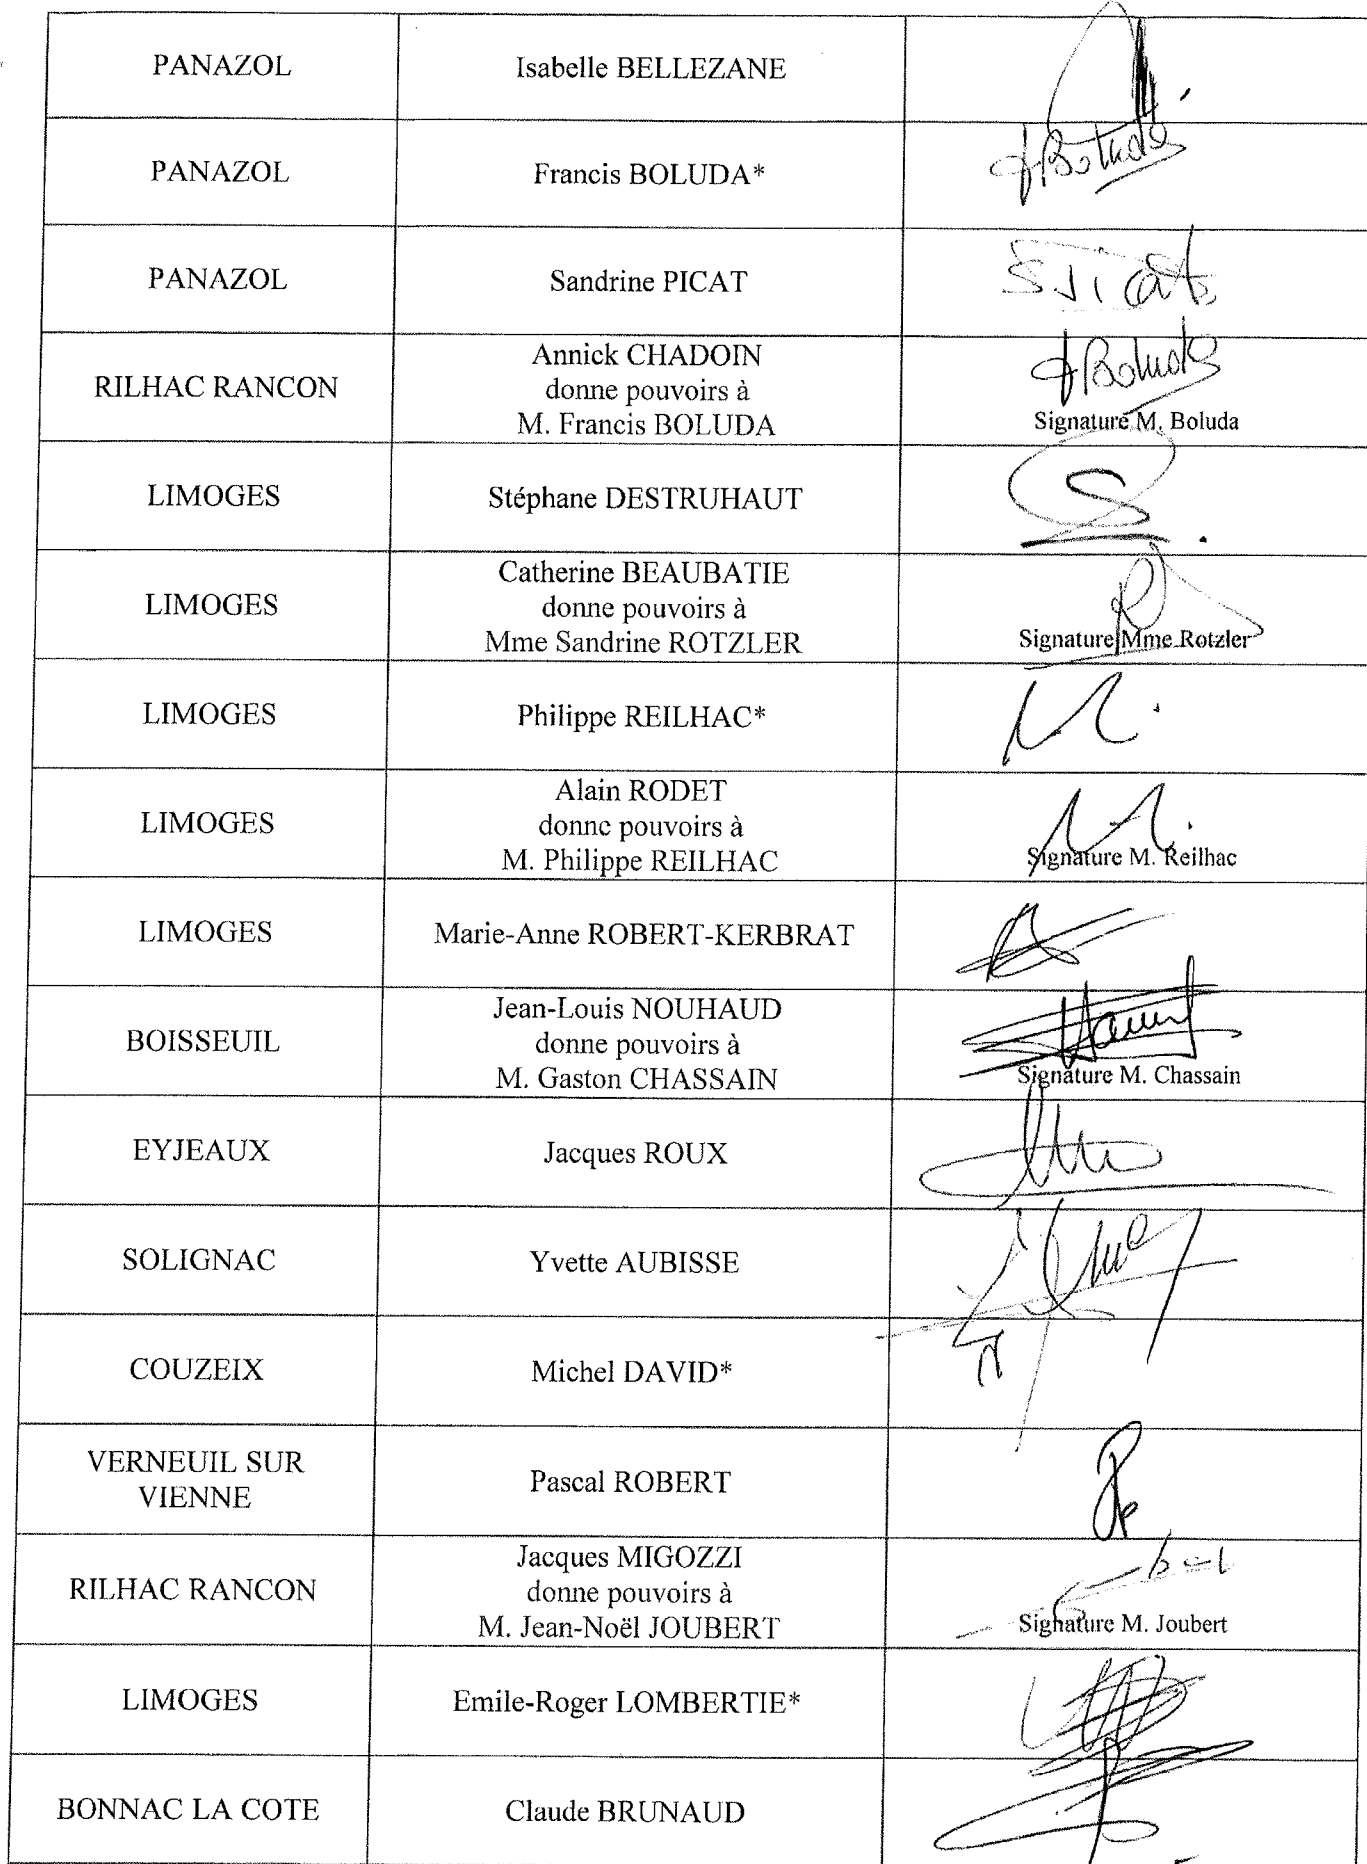 PANAZOL
Isabelle BELLEZANE
PANAZOL
Francis BOLUDA*
F Boluda
PANAZOL
Sandrine PICAT
S Picat
RILHAC RANCON
Annick CHADOIN
donne pouvoirs à
M. Francis BOLUDA
F Boluda
Signature M. Boluda
LIMOGES
Stéphane DESTRUHAUT
LIMOGES
Catherine BEAUBATIE
donne pouvoirs à
Mme Sandrine ROTZLER
Signature Mme Rotzler
LIMOGES
Philippe REILHAC*
LIMOGES
Alain RODET
donne pouvoirs à
M. Philippe REILHAC
Signature M. Reilhac
LIMOGES
Marie-Anne ROBERT-KERBRAT
BOISSEUIL
Jean-Louis NOUHAUD
donne pouvoirs à
M. Gaston CHASSAIN
Signature M. Chassain
EYJEAUX
Jacques ROUX
SOLIGNAC
Yvette AUBISSE
COUZEIX
Michel DAVID*
VERNEUIL SUR
VIENNE
Pascal ROBERT
RILHAC RANCON
Jacques MIGOZZI
donne pouvoirs à
M. Jean-Noël JOUBERT
Signature M. Joubert
LIMOGES
Emile-Roger LOMBERTIE*
BONNAC LA COTE
Claude BRUNAUD